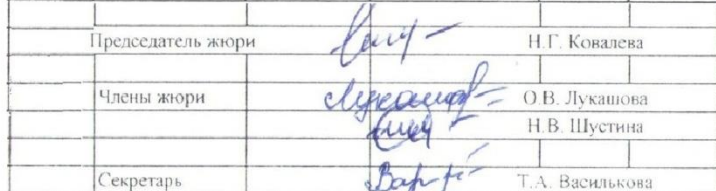 Председатель жюри Н.Г. Ковалева
Члены жюри О.В. Лукашова
Н.В. Шустина
Секретарь Т.А. Василькова